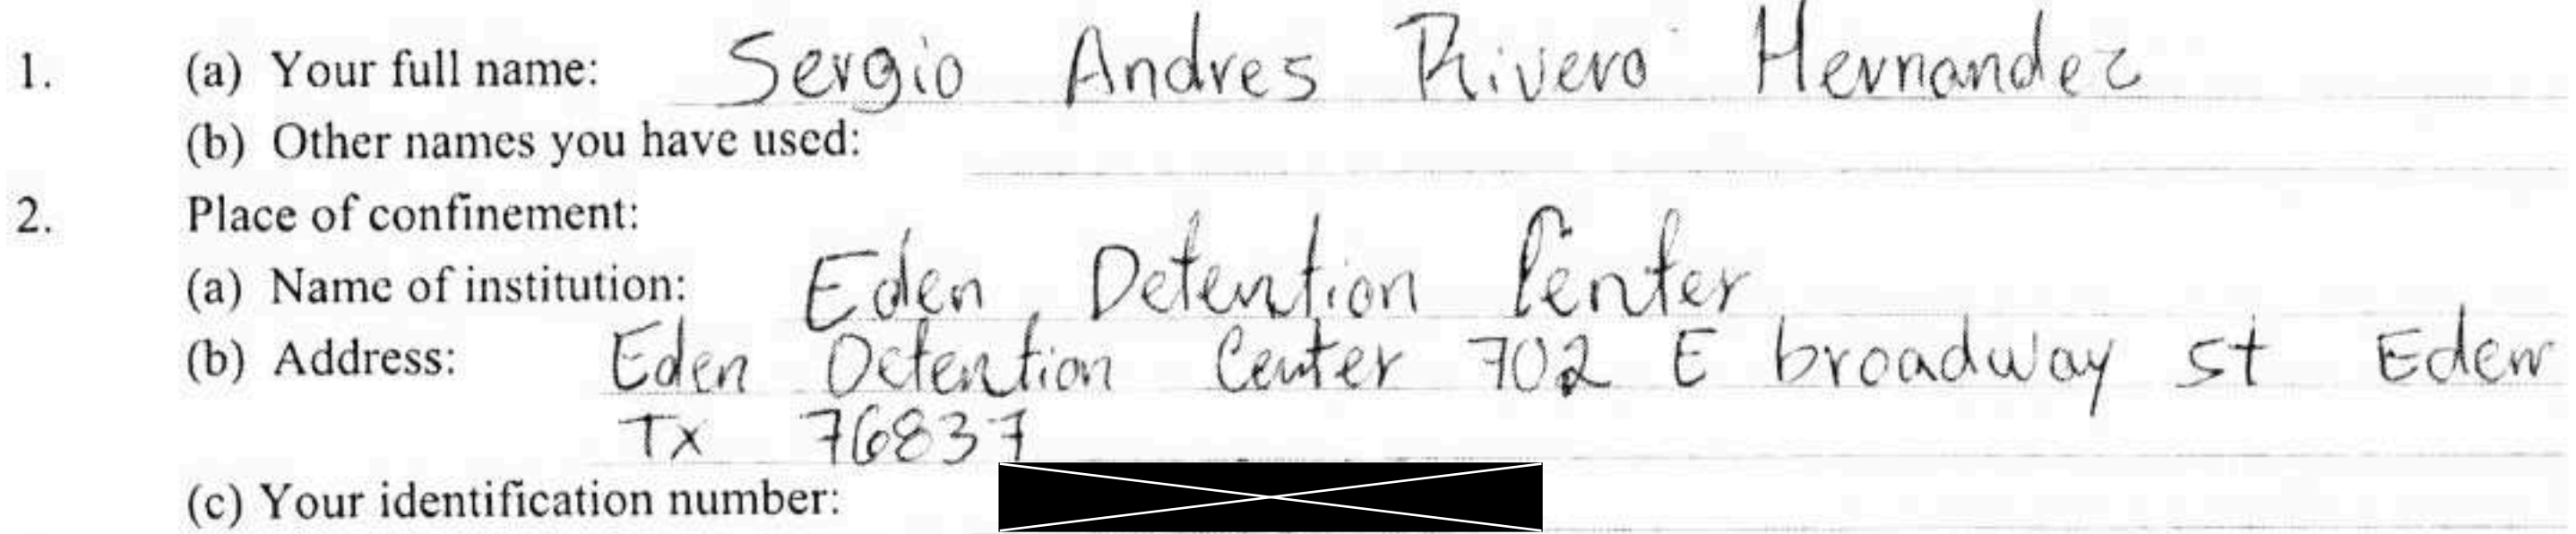 1. (a) Your full name: Sergio Andres Rivero Hernandez
(b) Other names you have used:
2. Place of confinement:
(a) Name of institution: Eden Detention Center
(b) Address: Eden Detention Center 702 E broadway st Eden
Tx 76837
(c) Your identification number: